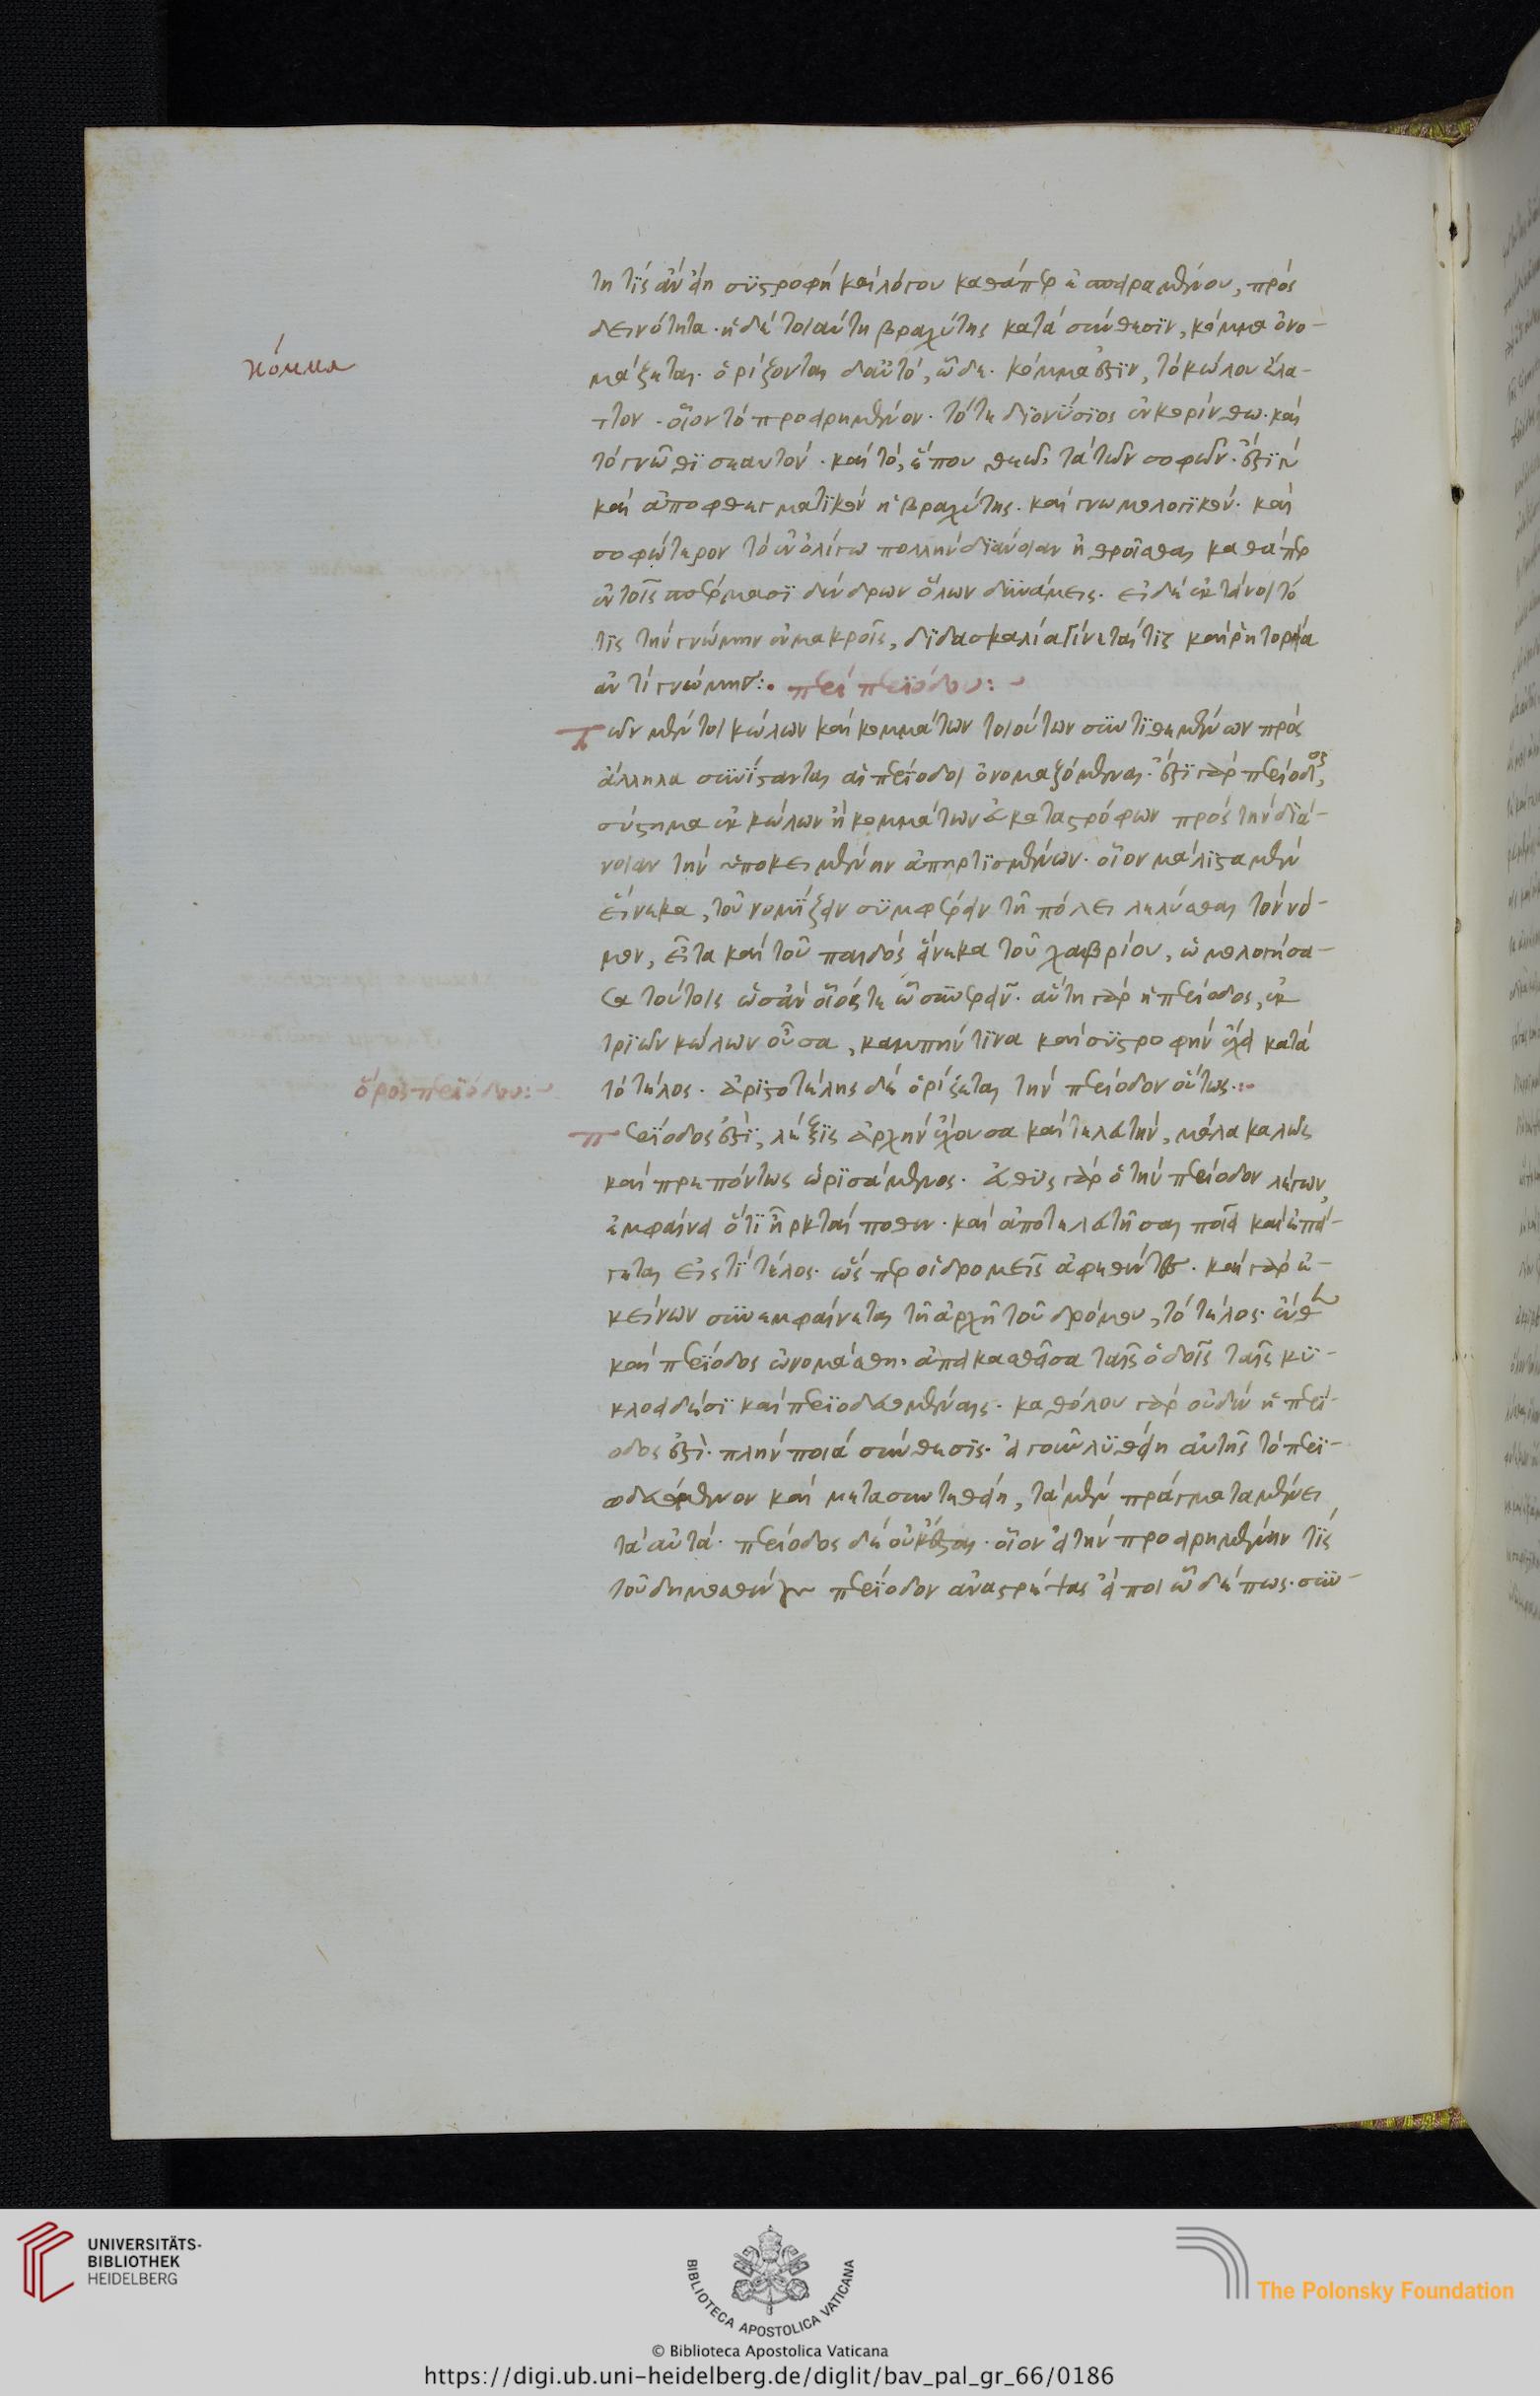 τε τίς ἂν εἴη συστροφὴ καὶ λόγου καθάπερ ἐσπειραμένου, πρὸς
δεινότητα. ἡ δὲ τοιαύτη βραχύτης κατὰ σύνθεσιν, κόμμα ὀνο-
κόμμα
μάζεται. ὁρίζονται δ' αὐτό, ὧδε. κόμμα ἐστὶν, τὸ κώλου ἔλα-
ττον. οἷον τὸ προειρημένον. τό τε διονύσιος ἐν κορίνθω. καὶ
τὸ γνῶθι σεαυτόν. καὶ τὸ, ἕπου θεῶ, τὰ τῶν σοφῶν. ἔστι
καὶ ἀποφθεγματικὸν ἡ βραχύτης. καὶ γνωμολογικόν. καὶ
σοφώτερον τὸ ἐν ὀλίγω πολλὴν διάνοιαν ἠθροῖσθαι καθάπερ
ἐν τοῖς σπέρμασι δένδρων ὅλων δυνάμεις. εἰ δὲ ἐκτείνοι τό
τις τὴν γνώμην ἐν μακροῖς, διδασκαλία γίνεταί τις καὶ ῥητορεία
ἀντὶ γνώμης:. περὶ περιόδου:
Τῶν μέντοι κώλων καὶ κομμάτων τοιούτων συντιθεμένων πρὸς
ἄλληλα συνίστανται αἱ περίοδοι ὀνομαζόμεναι. ἔστι γὰρ περίοδος,
σύστημα ἐκ κώλων ἢ κομμάτων εὐκαταστρόφων πρὸς τὴν διά-
νοιαν τὴν ὑποκειμένην ἀπηρτισμένων. οἷον μάλιστα μὲν
εἵνεκα, τοῦ νομίζειν συμφέρειν τῆ πόλει λελύσθαι τὸν νό-
μον, εἶτα καὶ τοῦ παιδὸς εἵνεκα τοῦ χαβρίου, ὡμολόγησα
τούτοις ὡς ἂν οἷός τε ὦ συνερεῖν. αὕτη γὰρ ἡ περίοδος, ἐκ
τριῶν κώλων οὖσα, καμπήν τινα καὶ συστροφὴν ἔχει κατὰ
ὅρος περιόδου:
τὸ τέλος. ἀριστοτέλης δὲ ὁρίζεται τὴν περίοδον οὕτως.:
Περίοδός ἐστι, λέξις ἀρχὴν ἔχουσα καὶ τελευτήν, μάλα καλῶς
καὶ πρεπόντως ὁρισάμενος. εὐθὺς γὰρ ὁ τὴν περίοδον λέγων,
ἐμφαίνει ὅτι ἦρκταί ποθεν. καὶ ἀποτελευτήσαι ποῖ καὶ ἐπεί-
γεται εἴς τι τέλος. ὥσπερ οἱ δρομεῖς ἀφεθέντες. καὶ γὰρ ἐ-
κείνων συνεμφαίνεται τῆ ἀρχῆ τοῦ δρόμου, τὸ τέλος. ἔνθεν
καὶ περίοδος ὠνομάσθη. ἀπεικασθεῖσα ταῖς ὁδοῖς ταῖς κυ-
κλοειδέσι καὶ περιοδευμέναις. καθόλου γὰρ οὐδὲν ἡ περί-
οδος ἐστὶ. πλὴν ποιὰ σύνθεσις. εἰ γοῦν λυθείη αὐτῆς τὸ περι-
ωδευμένον καὶ μετασυντεθείη, τὰ μὲν πράγματα μένει
τὰ αὐτά. περίοδος δὲ οὐκ ἔσται. οἷον εἰ τὴν προειρημένην τίς
τοῦ δημοσθένους περίοδον ἀναστρέψας εἴποι ὧδέ πως. συν-
UNIVERSITÄTS-
BIBLIOTHEK
HEIDELBERG
BIBLIOTECA APOSTOLICA VATICANA
The Polonsky Foundation
© Biblioteca Apostolica Vaticana
https://digi.ub.uni-heidelberg.de/diglit/bav_pal_gr_66/0186